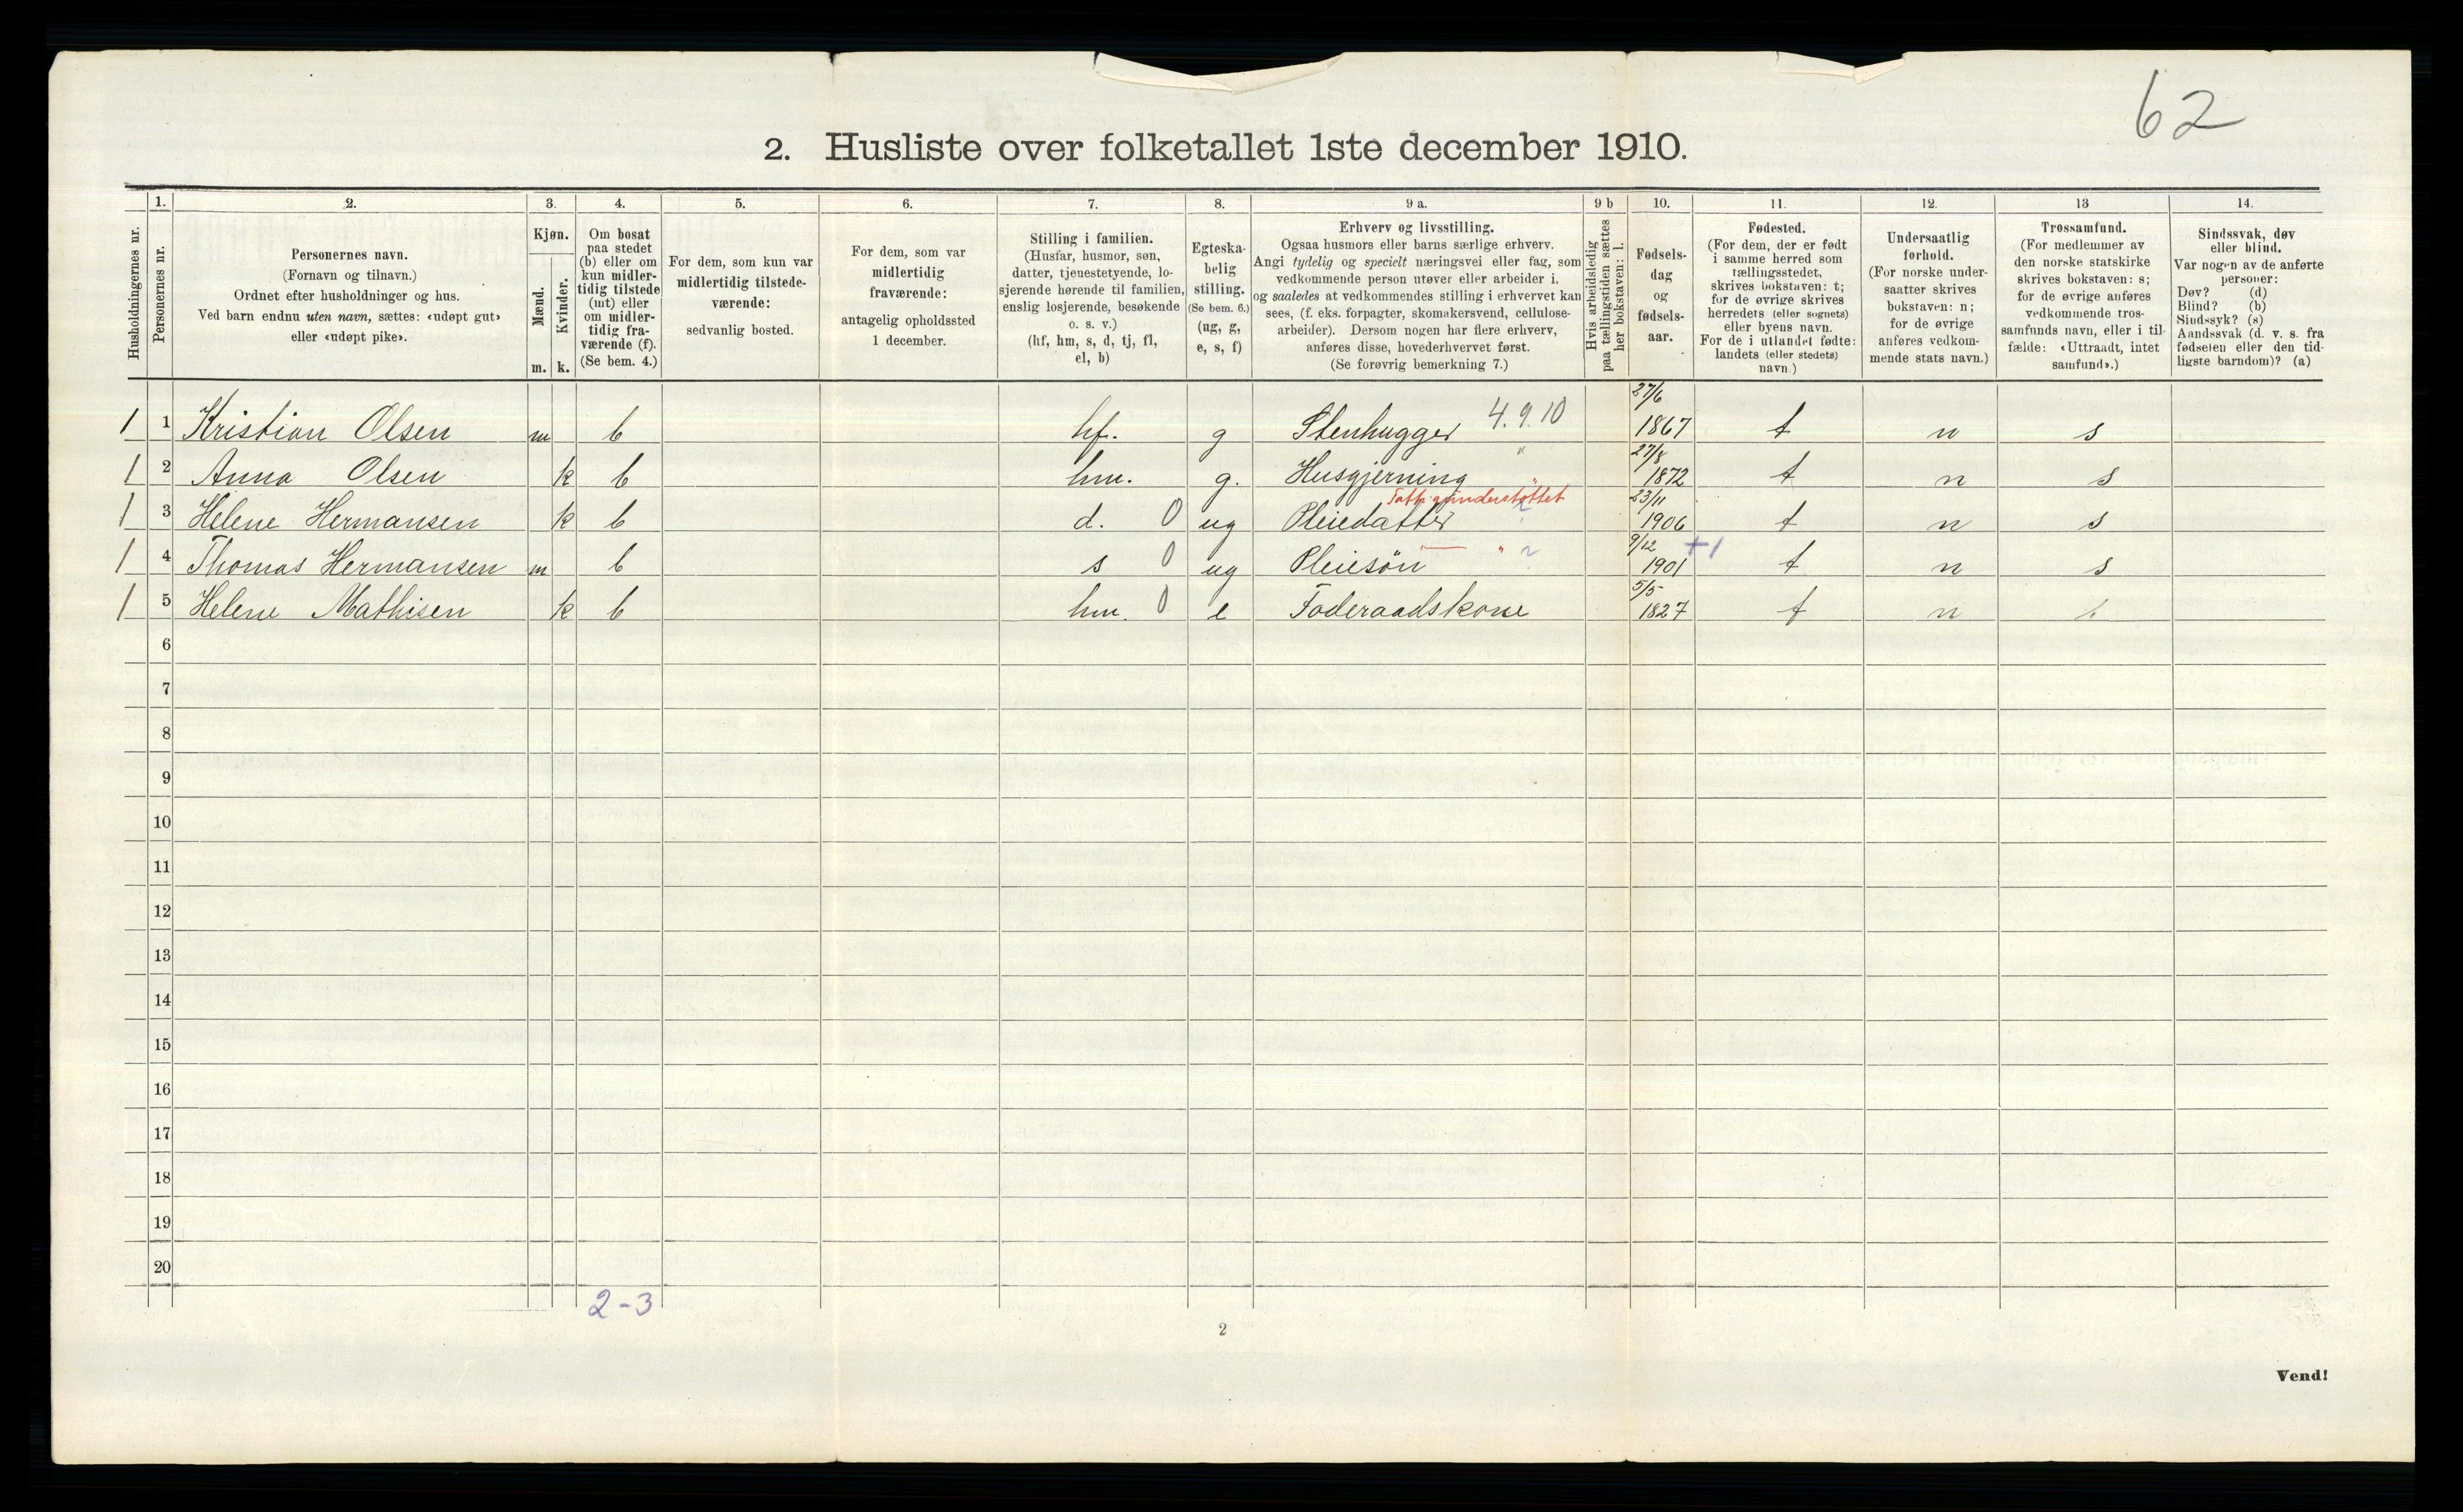 62
2. Husliste over folketallet 1ste december 1910.
Husholdningernes nr.
1.
Personernes nr.
2.
Personernes navn.
(Fornavn og tilnavn.)
Ordnet efter husholdninger og hus.
Ved barn endnu uten navn, sættes: «udøpt gut»
eller «udøpt pike».
3.
Kjøn.
Mænd.
Kvinder.
m. k.
4.
Om bosat
paa stedet
(b) eller om
kun midler-
tidig tilstede
(mt) eller
om midler-
tidig fra-
værende (f).
(Se bem. 4.)
5.
For dem, som kun var
midlertidig tilstede-
værende:
sedvanlig bosted.
6.
For dem, som var
midlertidig
fraværende:
antagelig opholdssted
1 december.
7.
Stilling i familien.
(Husfar, husmor, søn,
datter, tjenestetyende, lo-
sjerende hørende til familien,
enslig losjerende, besøkende
o. s. v.)
(hf, hm, s, d, tj, fl,
el, b)
8.
Egteska-
belig
stilling.
(Se bem. 6.)
(ug, g,
e, s, f)
9 a.
Erhverv og livsstilling.
Ogsaa husmors eller barns særlige erhverv.
Angi tydelig og specielt næringsvei eller fag, som
vedkommende person utøver eller arbeider i,
og saaledes at vedkommendes stilling i erhvervet kan
sees, (f. eks. forpagter, skomakersvend, cellulose-
arbeider). Dersom nogen har flere erhverv,
anføres disse, hovederhvervet først.
(Se forøvrig bemerkning 7.)
9 b
Hvis arbeidsledig
paa tællingstiden sættes
her bokstaven: l.
10.
Fødsels-
dag
og
fødsels-
aar.
11.
Fødested.
(For dem, der er født
i samme herred som
tællingsstedet,
skrives bokstaven: t;
for de øvrige skrives
herredets (eller sognets)
eller byens navn.
For de i utlandet fødte:
landets (eller stedets)
navn.)
12.
Undersaatlig
forhold.
(For norske under-
saatter skrives
bokstaven: n;
for de øvrige
anføres vedkom-
mende stats navn.)
13
Trossamfund.
(For medlemmer av
den norske statskirke
skrives bokstaven: s;
for de øvrige anføres
vedkommende tros-
samfunds navn, eller i til-
fælde: «Uttraadt, intet
samfund».)
14.
Sindssvak, døv
eller blind.
Var nogen av de anførte
personer:
Døv? (d)
Blind? (b)
Sindssyk? (s)
Aandssvak (d. v. s. fra
fødselen eller den tid-
ligste barndom)? (a)
1 1 Kristian Olsen m b hf. g Stenhugger 4.9.10 27/6 1867 t n s
1 2 Anna Olsen k b hm. g. Husgjerning " 27/8 1872 t n s
1 3 Helene Hermansen k b d. 0 ug Pleiedatter Fattigunderstøttet 23/11 1906 t n s
1 4 Thomas Hermansen m b s 0 ug Pleiesön — " 9/12 1901 +1 t n s
1 5 Helene Mathisen k b hm. 0 e Foderaadskone 5/5 1827 t n s
6
7
8
9
10
11
12
13
14
15
16
17
18
19
20
2-3
2
Vend!